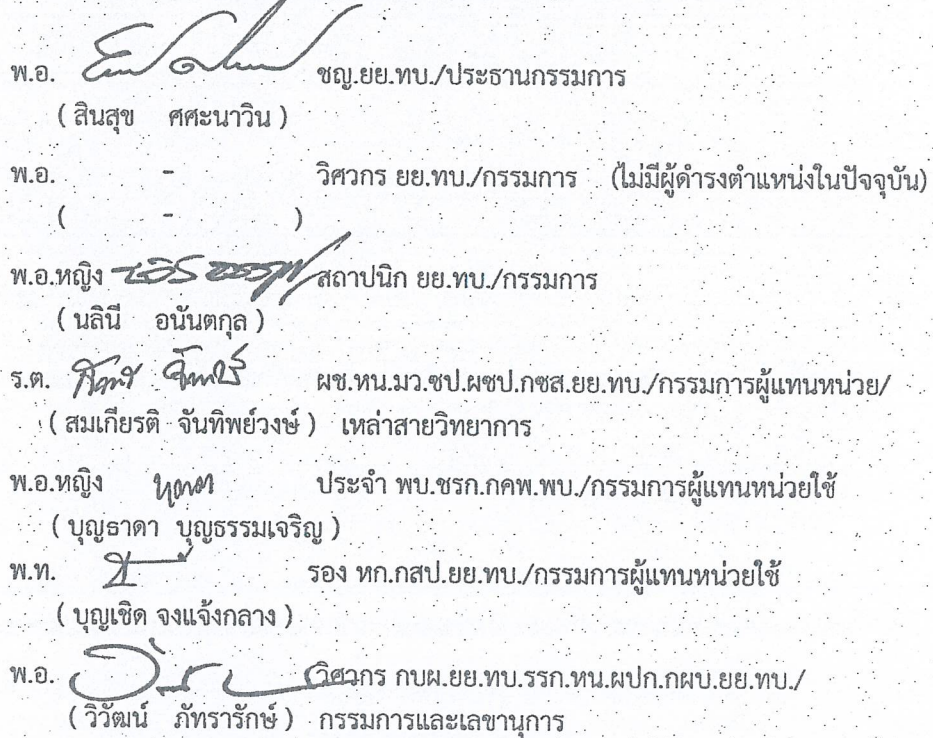 พ.อ. ชญ.ยย.ทบ./ประธานกรรมการ
( สินสุข ศศะนาวิน )
พ.อ. - วิศวกร ยย.ทบ./กรรมการ (ไม่มีผู้ดำรงตำแหน่งในปัจจุบัน)
( - )
พ.อ.หญิง สถาปนิก ยย.ทบ./กรรมการ
( นลินี อนันตกุล )
ร.ต. ผช.หน.มว.ซป.ผซป.กซส.ยย.ทบ./กรรมการผู้แทนหน่วย/
( สมเกียรติ จันทิพย์วงษ์ ) เหล่าสายวิทยาการ
พ.อ.หญิง ประจำ พบ.ชรก.กคพ.พบ./กรรมการผู้แทนหน่วยใช้
( บุญธาดา บุญธรรมเจริญ )
พ.ท. รอง หก.กสป.ยย.ทบ./กรรมการผู้แทนหน่วยใช้
( บุญเชิด จงแจ้งกลาง )
พ.อ. วิศวกร กบผ.ยย.ทบ.รรก.หน.ผปก.กผบ.ยย.ทบ./
( วิวัฒน์ ภัทรารักษ์ ) กรรมการและเลขานุการ